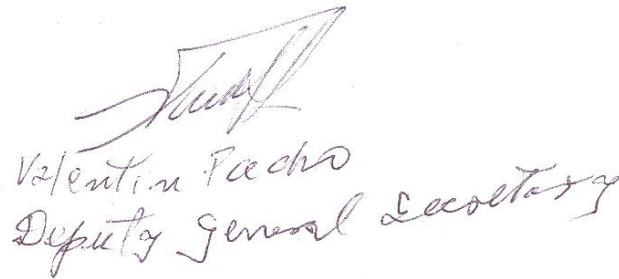 Valentin Pacho
Deputy General Secretary